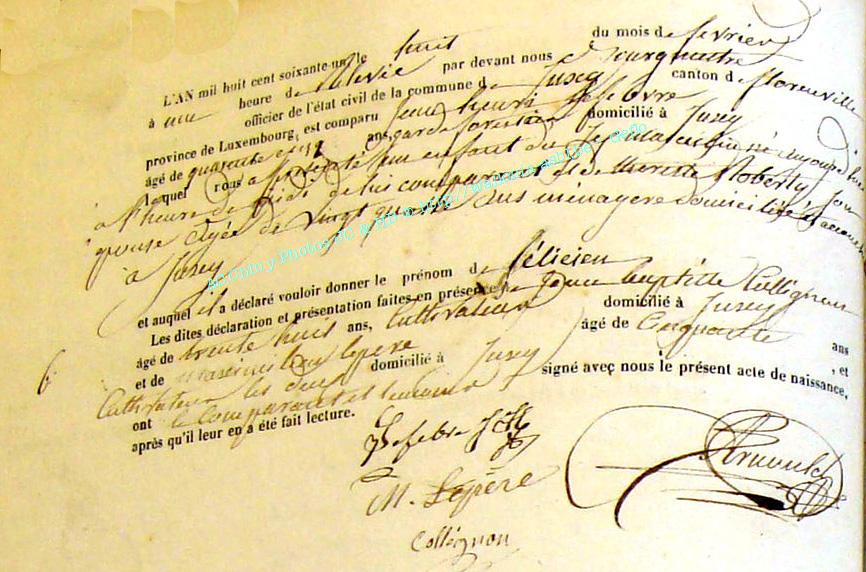 L'AN mil huit cent soixante-un le huit du mois de fevrier
à une heure de relevée par devant nous
officier de l'état civil de la commune de Jusey canton de florenville
province de Luxembourg, est comparu Jean henri Lefebvre domicilié à Jusey
âgé de quarante cinq ans, garde forestier
lequel nous a présenté un enfant du sexe masculin né aujourd'hui
à l'heure de midi de lui comparant et de therese Roberty son
epouse agée de vingt quatre ans ménagere domiciliée
à Jusey
et auquel il a déclaré vouloir donner le prénom de félicien
Les dites déclaration et présentation faites en présence de Jean baptiste Collignon
âgé de trente huit ans, Cultivateur domicilié à Jusey
et de lepere âgé de Cinquante ans
Cultivateur domicilié à Jusey, et
ont les deux signé avec nous le présent acte de naissance,
le Comparant et temoins
après qu'il leur en a été fait lecture.
Lefebvre
M. Lepère
Collignon